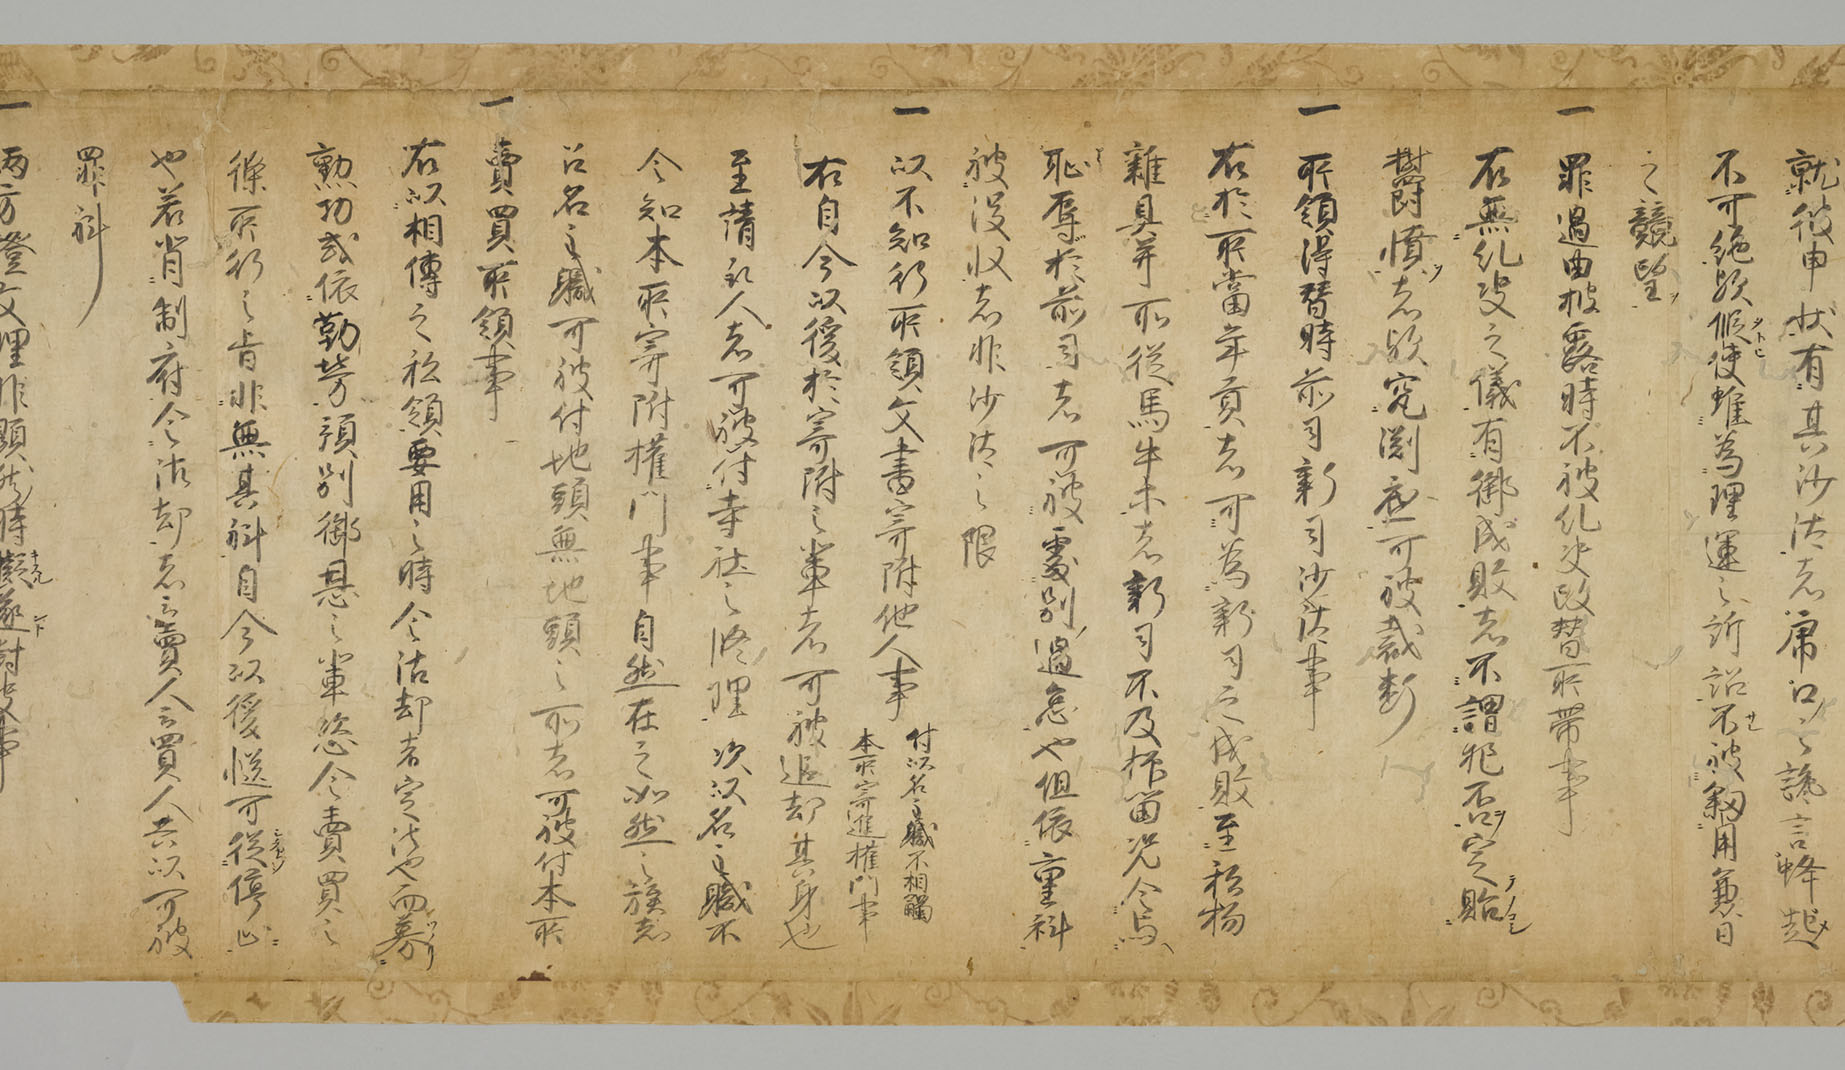 就彼申状有其沙汰者虎口之讒言蜂起
不可絶歟假使雖為理運之訴詔不被叙用兼日
之競望
一 罪過由披露時不被糺决改替所帯事
右無糺决之儀有御成敗者不謂犯否定貽
欝憤者歟究渕底可被裁断
一 所領得替時前司新司沙汰事
右於所當年貢者可為新司之成敗至私物
雜具并所従馬牛等者新司不及抑留况令与
恥辱於前司者可被處別過怠也但依重科
被没収者非沙汰之限
一 以不知行所領文書寄附他人事
付以名主職不相觸
本所寄進權門事
右自今以後於寄附之輩者可被追却其身也
至請取人者可被付寺社之修理 次以名主職不
令知本所寄附權門事自然在之如然之族者
召名主職可被付地頭無地頭之所者可被付本所
一 賣買所領事
右以相傳之私領要用之時令沽却者定法也而募
勲功或依勤勞預別御恩之輩恣令賣買之
條所行之旨非無其科自今以後慥可從停止
也若背制府令沽却者云賣人云買人共以可被
罪科
一 両方證文理非顕然時擬遂對决事